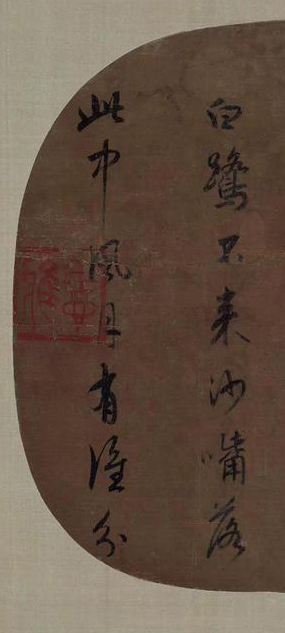 白鷺不來沙嘴落
此中風月有誰分